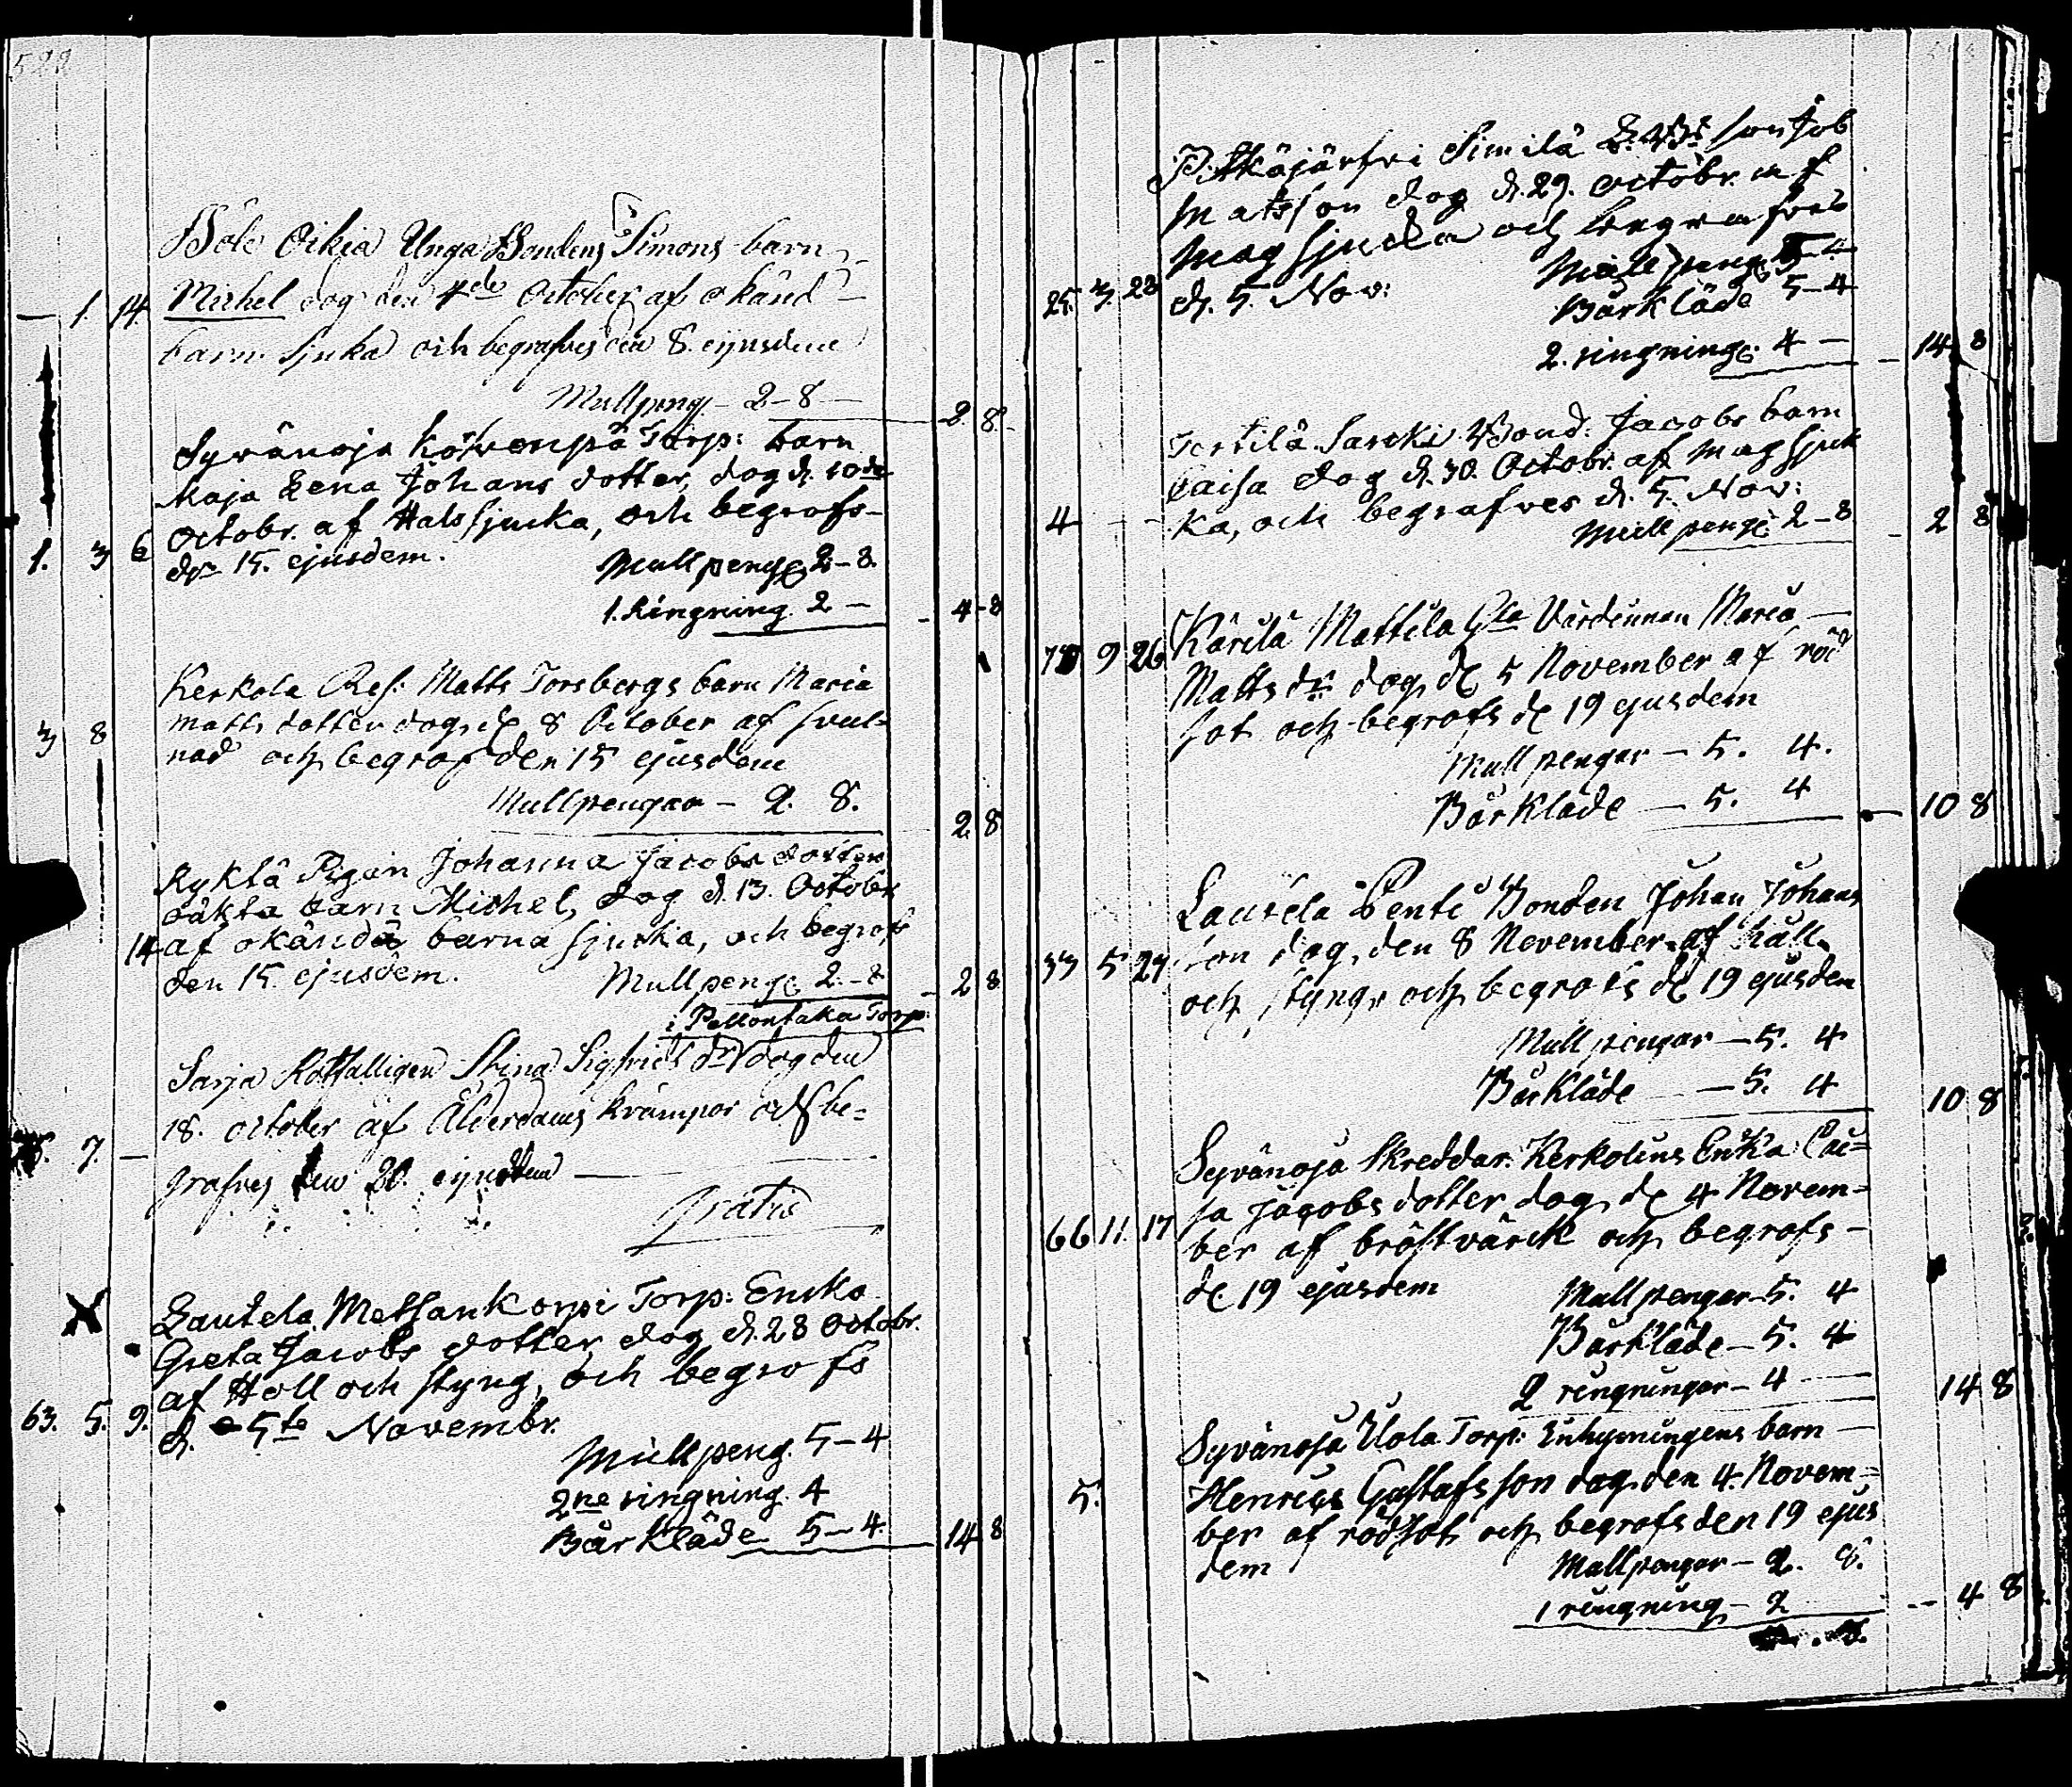 522
Böle Oikia Unga Bondens Simons barn
— 1. 14. Michel dog den 4de October af okänd
barn Sjuka och begrafves den 8. ejusdem
Mullpeng. - 2 - 8 — 2. 8.
Syvänoja Torp: barn
Maja Lena Johans dotter, dog d. 10de
Octobr. af Halssjucka, och begrofs
1. 3 6 den 15. ejusdem. Mull peng. 2 - 8.
1. Ringning 2 — 4 - 8
Kerkola Matts Torsbergs barn Maria
Matts dotter dog d. 8 October af svul-
3 8 nad och begrof den 15 ejusdem
Mullpengar - 2. 8. 2 8
Ryktä Pigan Johanna Jacobs dotters
oäkta barn Michel, dog d. 13. Octobr.
14 af okända barna sjucka, och begrofs
den 15. ejusdem. Mull peng. 2 - 8 2 8
Torp.
Sarja Rotfattigen Stina Sigfrids dr dog den
18. october af Ålderdoms krämpor och be-
7. — grafves den 20. ejusdem —
Gratis
Lautela Metsankorpi Torp: Encka
Greta Jacobs dotter dog d. 28 Octobr.
af Håll och styng, och begrofs
63. 5. 9. d. 5te Novembr.
Mull peng. 5 - 4
2ne ringning. 4
Bårkläde 5 - 4. 14 8
Pitkäjärfvi Similä son Job
Matsson dog d. 29. octobr. af
magsjucka och begrafves
25. 3. 23 d. 5. Nov: Mull peng. 5 - 4
Bårkläde 5 - 4
2. ringning. 4 — 14 8
Tertilä Sarcki Bond. Jacobs barn
Caisa dog d. 30. Octobr. af magsjuk
4 - - ka, och begrafves d. 5. Nov:
Mull peng. 2 - 8 2 8
9 26 Kärilä Mattila Gla Värdinnan Maria
Matts dr dog d. 5 November af röd
sot och begrofs d. 19 ejusdem
Mull pengar - 5. 4.
Bårkläde - 5. 4 — 10 8
Lautela Penti Bonden Johan Johans
33 5 27 son dog den 8 November af håll
och styng och begrofs d. 19 ejusdem
Mull pengar - 5. 4
Bårkläde - 5. 4 10 8
Syvänoja Skreddar. Kerkolins Enka Cai-
sa Jacobs dotter dog d. 4 Novem-
66 11. 17 ber af bröstvärck och begrofs -
d. 19 ejusdem Mull pengar 5. 4
Bårkläde - 5. 4
2 ringningar - 4 — 14 8
Syvänoja Uola Torp: Inhysningens barn —
5. Henrics Gustafs son dog den 4. Novem-
ber af rödsot och begrofs den 19 ejus
dem Mullpengar - 2. 8.
1 ringning - 2 -- 4 8